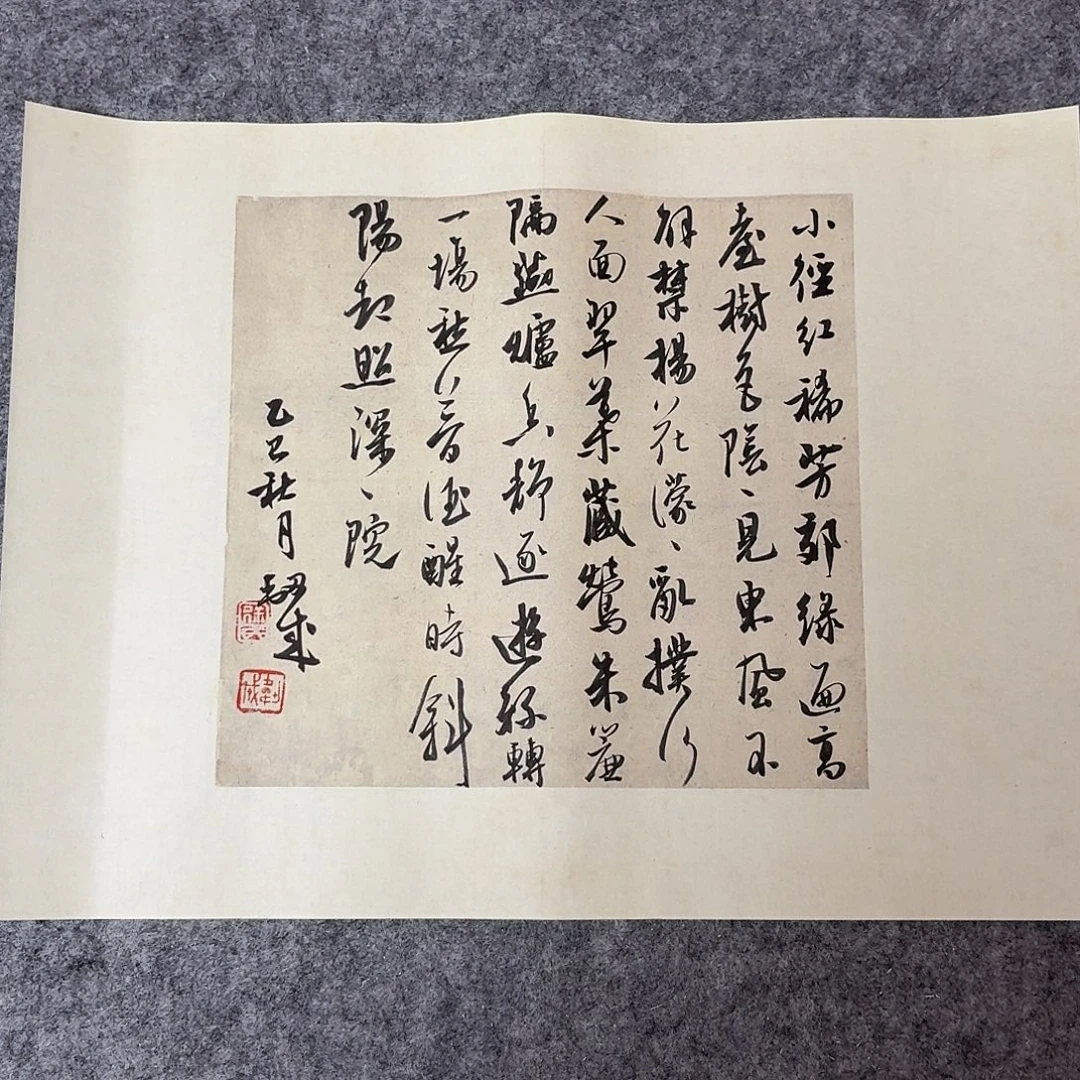 小徑紅稀芳郊綠遍高
臺樹色陰〻見東風不
解禁楊花濛〻亂撲行
人面翠葉藏鶯朱簾
隔燕爐香靜逐遊絲轉
一場愁夢酒醒時斜
陽却照深〻院
乙巳秋月